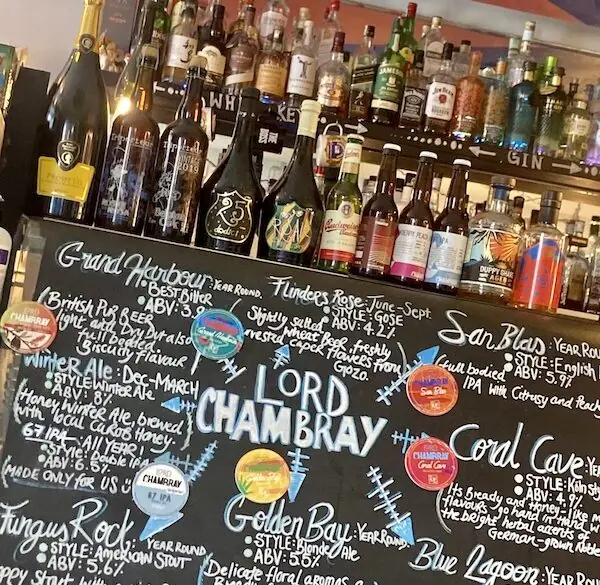 WHISKEY
GIN
JAMESON
JIM BEAM
Budweiser
DUPPY SHARE
AGED
Grand Harbour: YEAR ROUND.
BEST BITTER
ABV: 3.
British Pub BEER
light with Dry but also
full bodied
Biscuity flavour
Flinders Rose: June-Sept.
STYLE: GOSE
ABV: 4.2%
Slightly salted
wheat Beer, freshly
Caper flowers from
Gozo.
San Blas: YEAR ROU
STYLE: English I
ABV: 5.9%
full bodied
IPA with Citrusy and Peach
CHAMBRAY
San Blas
Winter Ale: DEC-MARCH
STYLE: Winter Ale
ABV: 8%
Honey Winter Ale, brewed
with local Carob Honey.
67 IPA: ALL YEAR!
STYLE: Double IPA
ABV: 6.5%
(MADE ONLY FOR US
LORD
CHAMBRAY
Coral Cave: YE
STYLE: Köln sty
ABV: 4.9%
Its Bready and Honey-like m
flavours go hand in hand w
the bright herbal accents of
German-grown Noble
Coral Cave
LORD
CHAMBRAY
67 IPA
Fungus Rock: YEAR ROUND
STYLE: AMERICAN STOUT
ABV: 5.6%
Golden Bay: YEAR ROUND.
STYLE: Blonde Ale
ABV: 5.5%
Delicate floral aromas
Blue Lagoon: YEAR ROUN
STYLE: